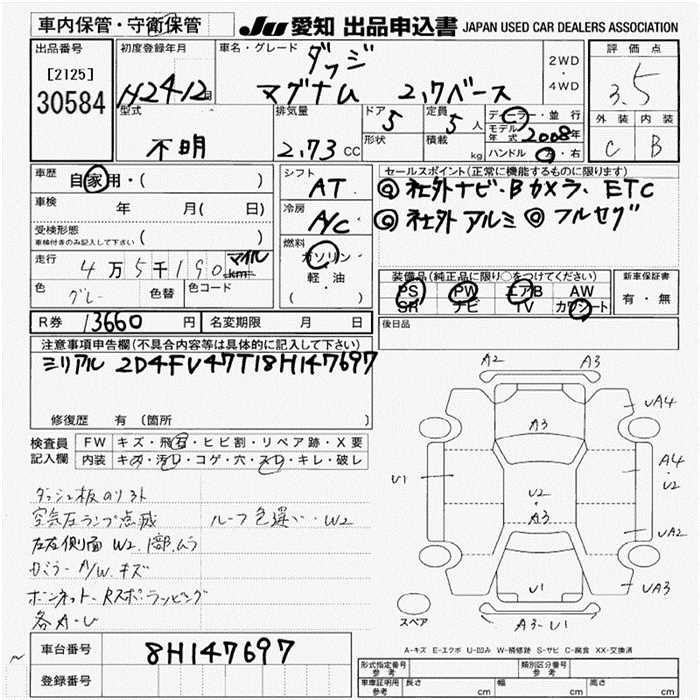 車内保管・守衛保管
JU 愛知 出品申込書 JAPAN USED CAR DEALERS ASSOCIATION
出品番号
[2125]
30584
初度登録年月
H24-12月
車名・グレード
ダッジ
マグナム 2,7ベース
2WD
・
4WD
評価点
3.5
外装 内装
C B
型式
不明
排気量
2,73 CC
ドア 5
形状
定員 5 人
積載 kg
ディーラー・並行
モデル年式 2008年
ハンドル 左・右
車歴
自家用・( )
車検 年 月( 日)
受検形態
車検付きのみ記入して下さい ( )
走行 4万5千190 マイル km
色 グレー 色替 色コード
シフト
AT
冷房
A/C
燃料
ガソリン
・
軽・油
セールスポイント(正常に機能するものに限ります)
◎社外ナビ・Bカメラ、ETC
◎社外アルミ ◎フルセグ
装備品(純正品に限り○をつけてください)
PS PW エアB AW
SR ナビ TV カワシート
新車保証書
有・無
R券 13660 円 名変期限 月 日
後日品
注意事項申告欄(不具合内容等は具体的に記入して下さい)
シリアル 2D4FV47T18H147697
修復歴 有(箇所 )
検査員記入欄
FW キズ・飛石・ヒビ割・リペア跡・X要
内装 キズ・汚れ・コゲ・穴・スレ・キレ・破レ
ダッシュ板のリフト
空気圧ランプ点滅 ルーフ色違い・W2
左右側面 W2.1部ムラ
カミラーA/W.キズ
ボンネット・Rスポ・ラッピング
各A-U
A2 A3
A3
UA4
U1
U2
A3
A4
U2
A2
U1
UA3
A3-U1
スペア
A-キズ E-エクボ U-凹み W-補修跡 S-サビ C-腐食 XX-交換済
車台番号 8H147697
登録番号
型式指定番号 参考
類別区分番号 参考
車庫証明用 参考 長さ cm 幅 cm 高さ cm